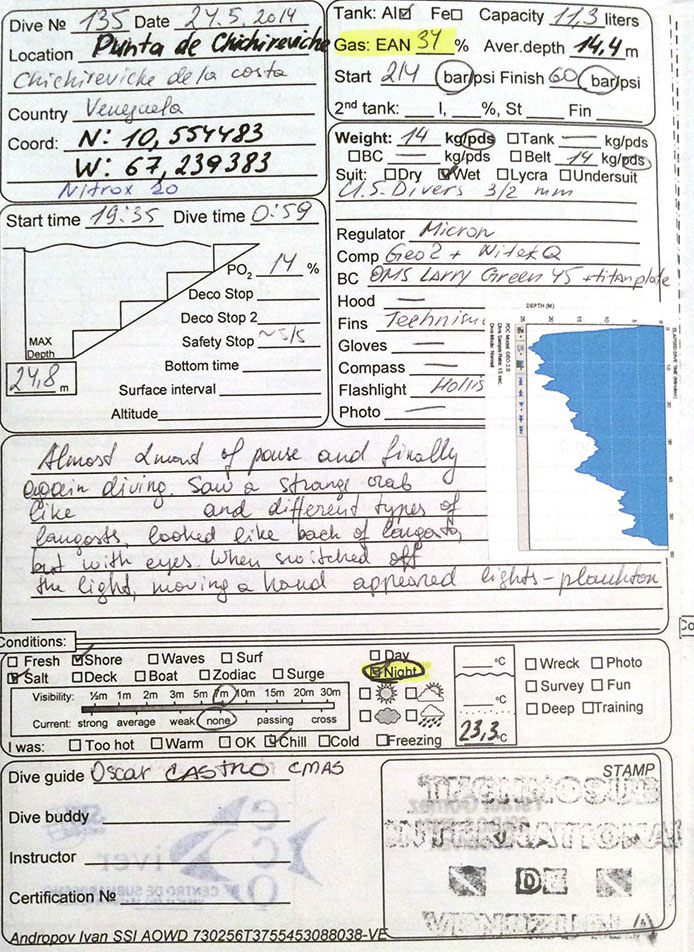 Dive № 135 Date 24.5.2014
Location Punta de Chichireviche
Chichireviche de la costa
Country Venezuela
Coord: N: 10,554483
W: 67,239383
Nitrox 20
Tank: Al☑ Fe☐ Capacity 11,3 liters
Gas: EAN 31 % Aver.depth 14,4 m
Start 214 bar/psi Finish 60 bar/psi
2nd tank: ___ l, ___ %, St ___ Fin ___
Weight: 14 kg/pds ☐Tank — kg/pds
☐BC — kg/pds ☐Belt 14 kg/pds
Suit: ☐Dry ☑Wet ☐Lycra ☐Undersuit
U.S. Divers 3/2 mm
Regulator Micron
Comp Geo2 + NitekQ
BC OMS Larry Green 45 + titan plate
Hood —
Fins
Gloves —
Compass —
Flashlight Hollis
Photo —
Start time 19:35 Dive time 0:59
PO2 14 %
Deco Stop
Deco Stop 2
Safety Stop ~5/5
Bottom time
Surface interval
Altitude
MAX
Depth
24,8 m
DEPTH (M)
ELAPSED DIVE TIME (Minutes)
PDC Model: GEO 2.0
Dive Sample Rate: 15 sec
Dive Mode: Normal
Almost 2 mont of pause and finally
again diving. Saw a strange crab
like and different types of
langosts, looked like back of langosta,
but with eyes. When switched off
the light, moving a hand appeared lights - plankton
Conditions:
☐ Fresh ☑Shore ☐Waves ☐Surf
☑Salt ☐Deck ☐Boat ☐Zodiac ☐Surge
☐ Day
☑Night
Visibility: ½m 1m 2m 3m 5m 7m 10m 15m 20m 30m
Current: strong average weak none passing cross
I was: ☐Too hot ☐Warm ☐OK ☑Chill ☐Cold ☐Freezing
°C
23,3 °C
☐Wreck ☐Photo
☐Survey ☐Fun
☐Deep ☐Training
Dive guide Oscar CASTRO CMAS
Dive buddy
Instructor
Certification №
STAMP
TECHNOSUB
INTERNATIONAL
DE
VENEZUELA
Andropov Ivan SSI AOWD 730256T3755453088038-VE